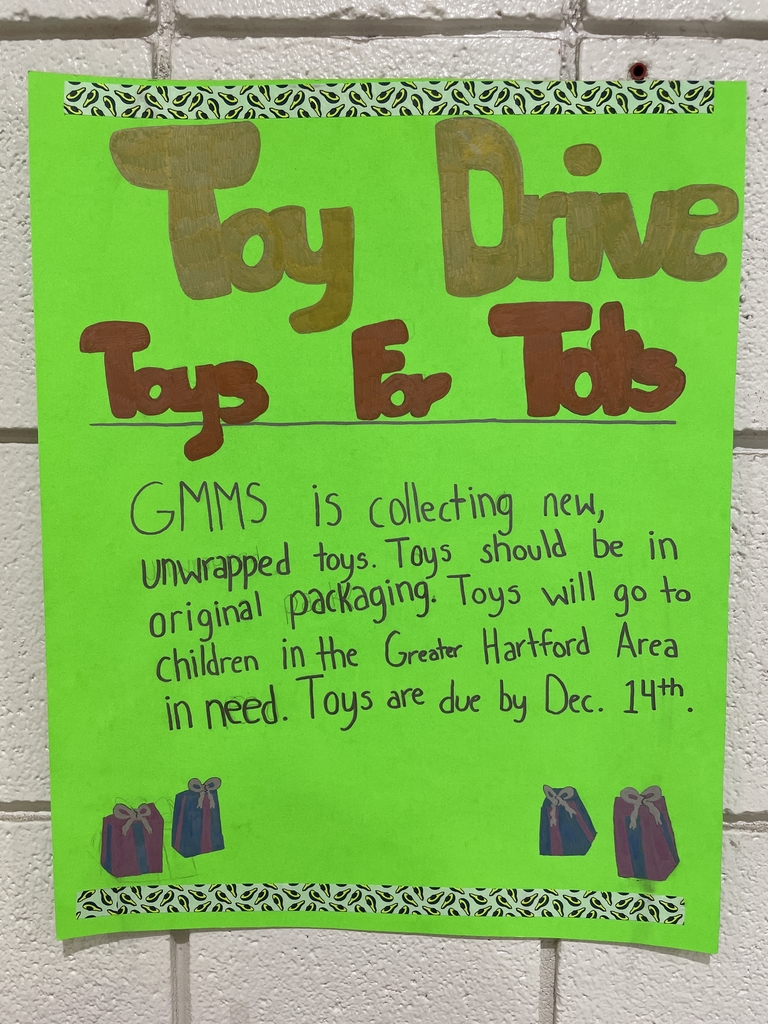 Toy Drive
Toys For Tots
GMMS is collecting new,
unwrapped toys. Toys should be in
original packaging. Toys will go to
children in the Greater Hartford Area
in need. Toys are due by Dec. 14th.